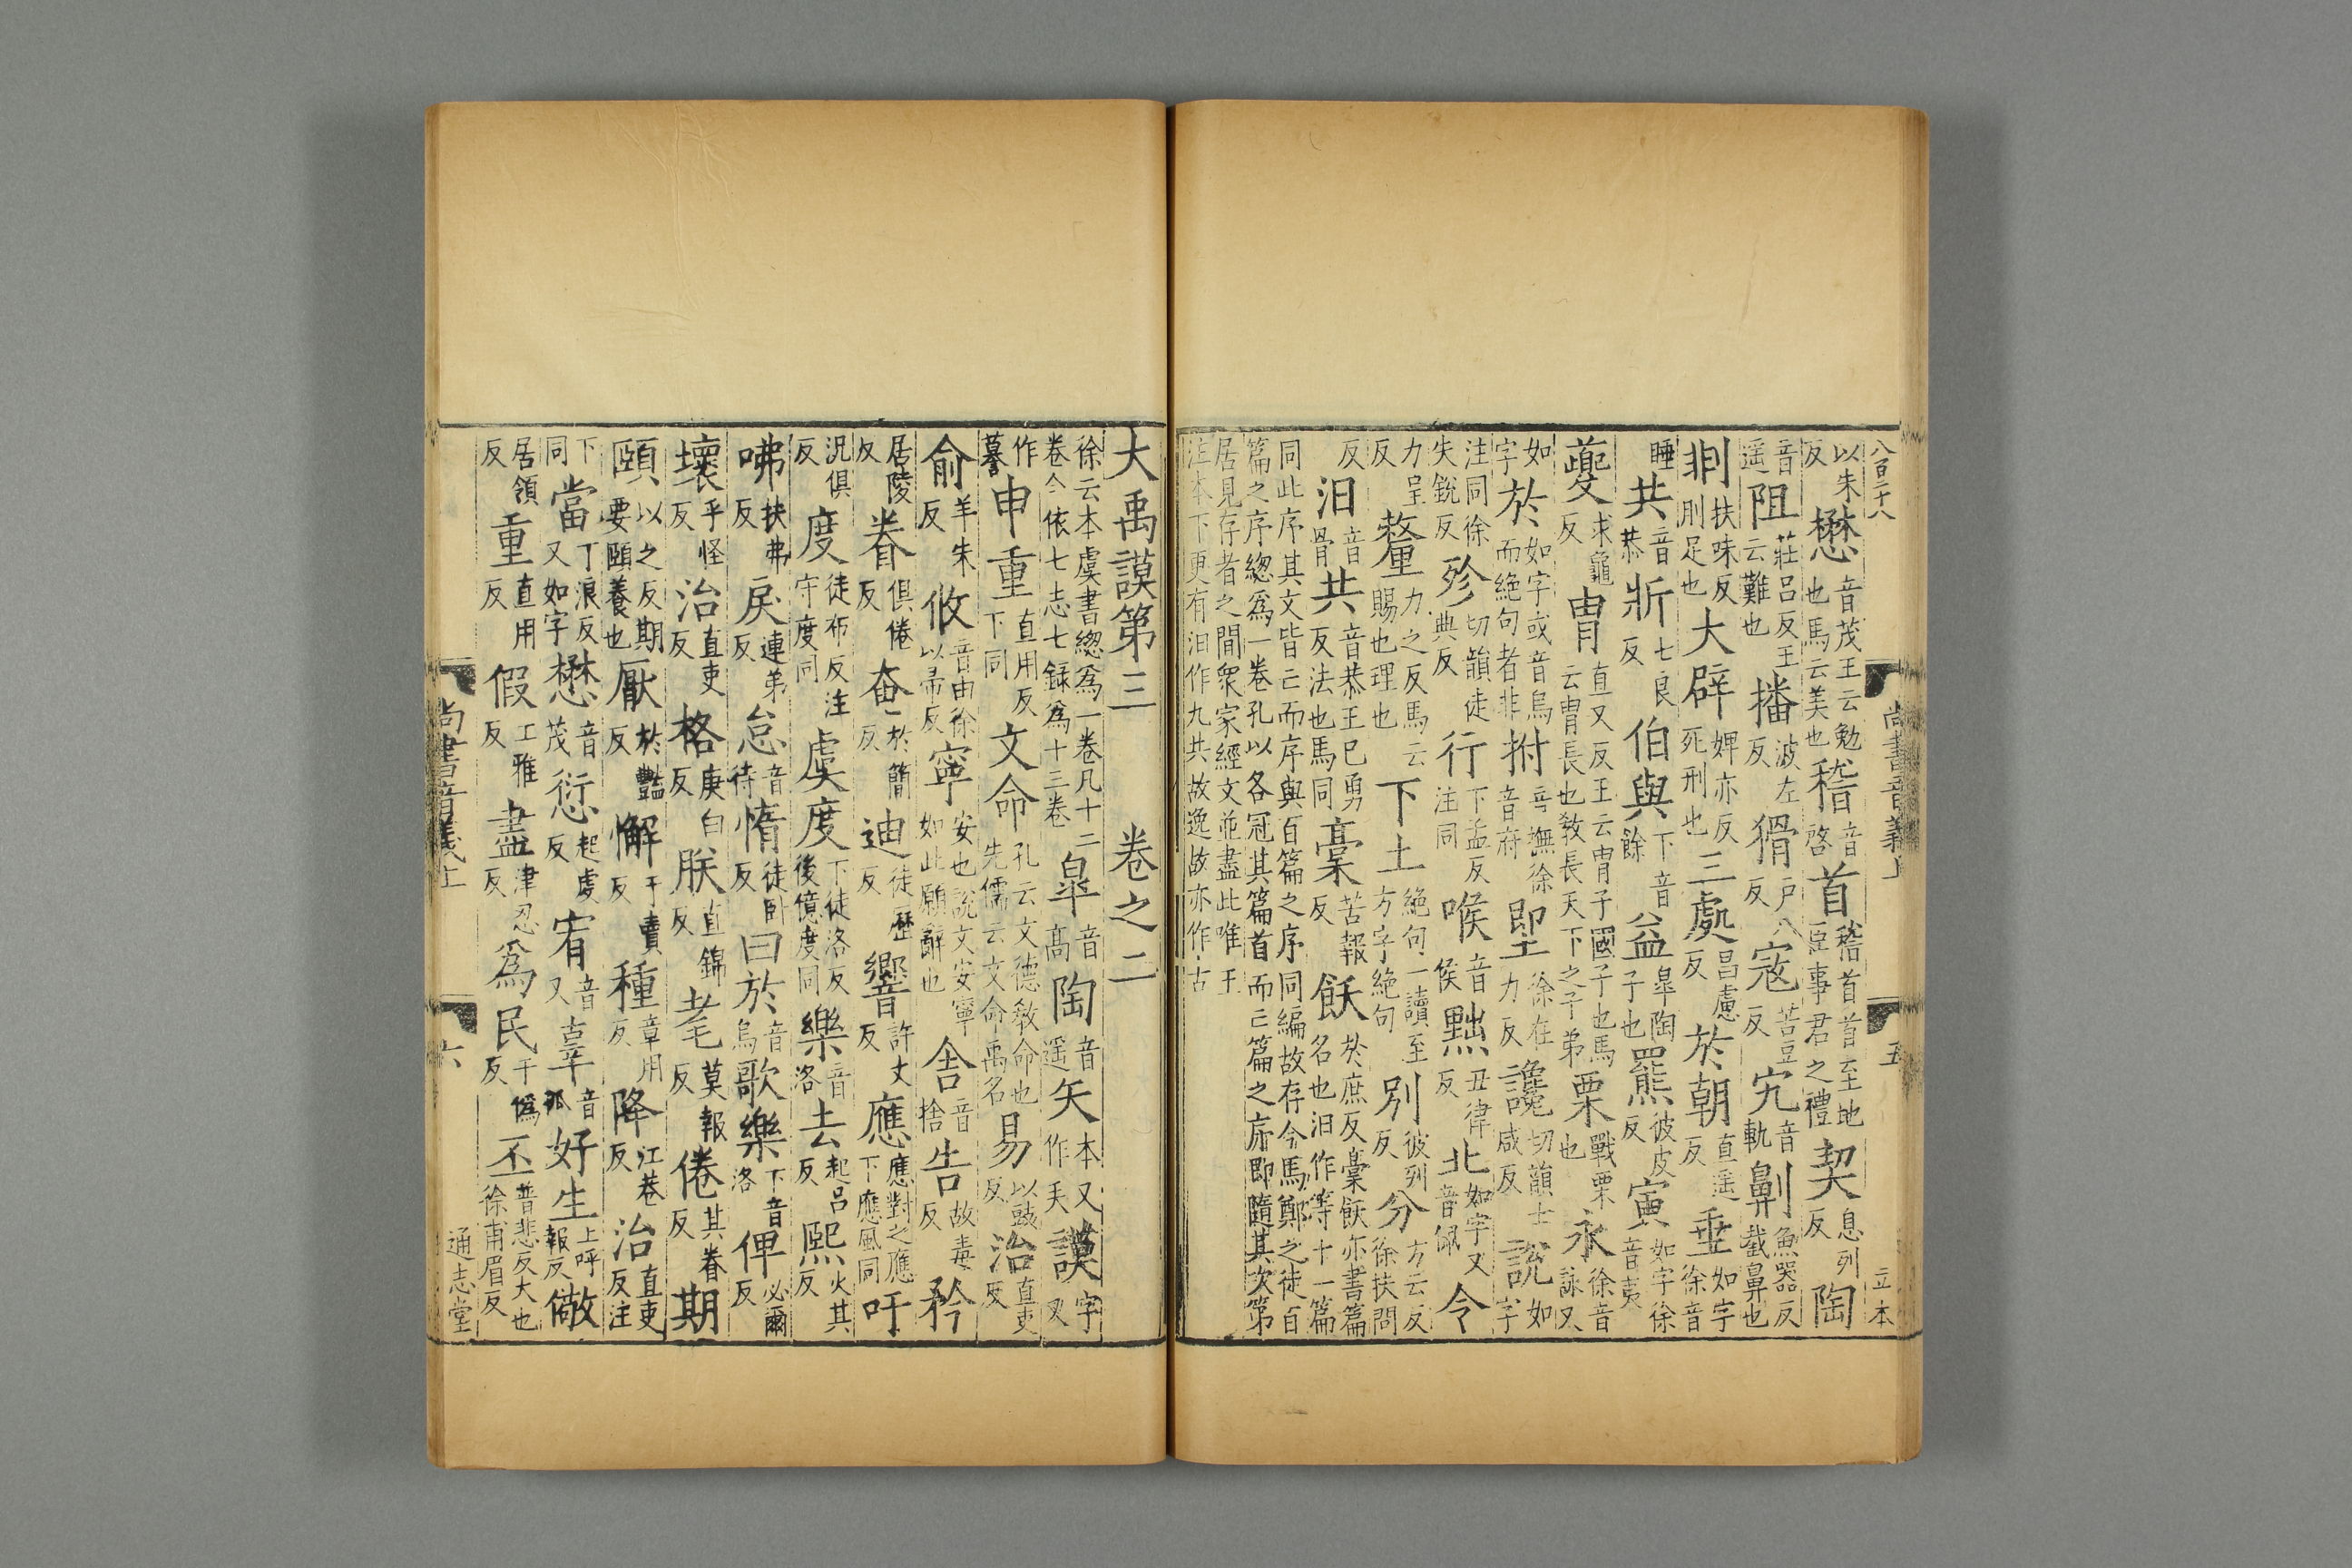 八百二十八 立本
以朱反 懋音茂王云勉也馬云美也 稽音啓 首稽首首至地臣事君之禮 契息列反 陶
音遥 阻莊呂反王云難也 播波左反 猾戶八反 寇苦豆反 宄音軌 劓魚器反截鼻也
剕扶味反刖足也 大辟婢亦反死刑也 三處昌慮反 於朝直遥反 垂如字徐音
睡 共音恭 斨七良反 伯與下音餘 益皐陶子也 羆彼皮反 寅如字徐音夷
夔求龜反 胄直又反王云胄子國子也馬云胄長也敎長天下之子弟 栗戰栗也 永徐音詠又
如字 於如字或音烏而絶句者非 拊音撫徐音府 堲徐在力反 讒切韻士咸反 說如字
注同徐失銳反 殄切韻徒典反 行下孟反注同 喉音侯 黜丑律反 北如字又音佩 令
力呈反 釐力之反馬云賜也理也 下土絶句一讀至方字絶句 別彼列反 分方云反徐扶問
反 汩音骨 共音恭王已勇反法也馬同 槀苦報反 飫於庶反槀飫亦書篇名也汩作等十一篇
同此序其文皆亡而序與百篇之序同編故存今馬鄭之徒百篇之序緫爲一卷孔以各冠其篇首而亡篇之序即隨其次第
居見存者之間衆家經文並盡此唯王注本下更有汩作九共故逸故亦作古
尚書音義上 五
大禹謨第三 卷之二
徐云本虞書緫爲一卷凡十二卷今依七志七録爲十三卷 皐音高 陶音遥 矢本又作𡗗 謨字又
作暮 申重直用反下同 文命孔云文德敎命也先儒云文命禹名 易以豉反 治直吏反
俞羊朱反 攸音由徐以帚反 寧安也說文安寧如此願辭也 舍音捨 告故毒反 矜
居陵反 眷俱倦反 奄於簡反 迪徒歷反 響許丈反 應應對之應下應風同 吁
況俱反 度徒布反注守度同 虞度下徒洛反後億度同 樂音洛 去起呂反 熙火其反
咈扶弗反 戾連弟反 怠音待 惰徒卧反 曰於音烏 歌樂下音洛 俾必爾反
壞乎怪反 治直吏反 格庚白反 朕直錦反 耄莫報反 倦其眷反 期
頤以之反期要頤養也 厭於豔反 懈于賣反 種章用反 降江巷反 治直吏反注
下同 當丁浪反又如字 懋音茂 愆起虔反 宥音又 辜音孤 好生上呼報反 儆
居領反 重直用反 假工雅反 盡津忍反 爲民于僞反 丕普悲反大也徐甫眉反
尚書音義上 六 通志堂